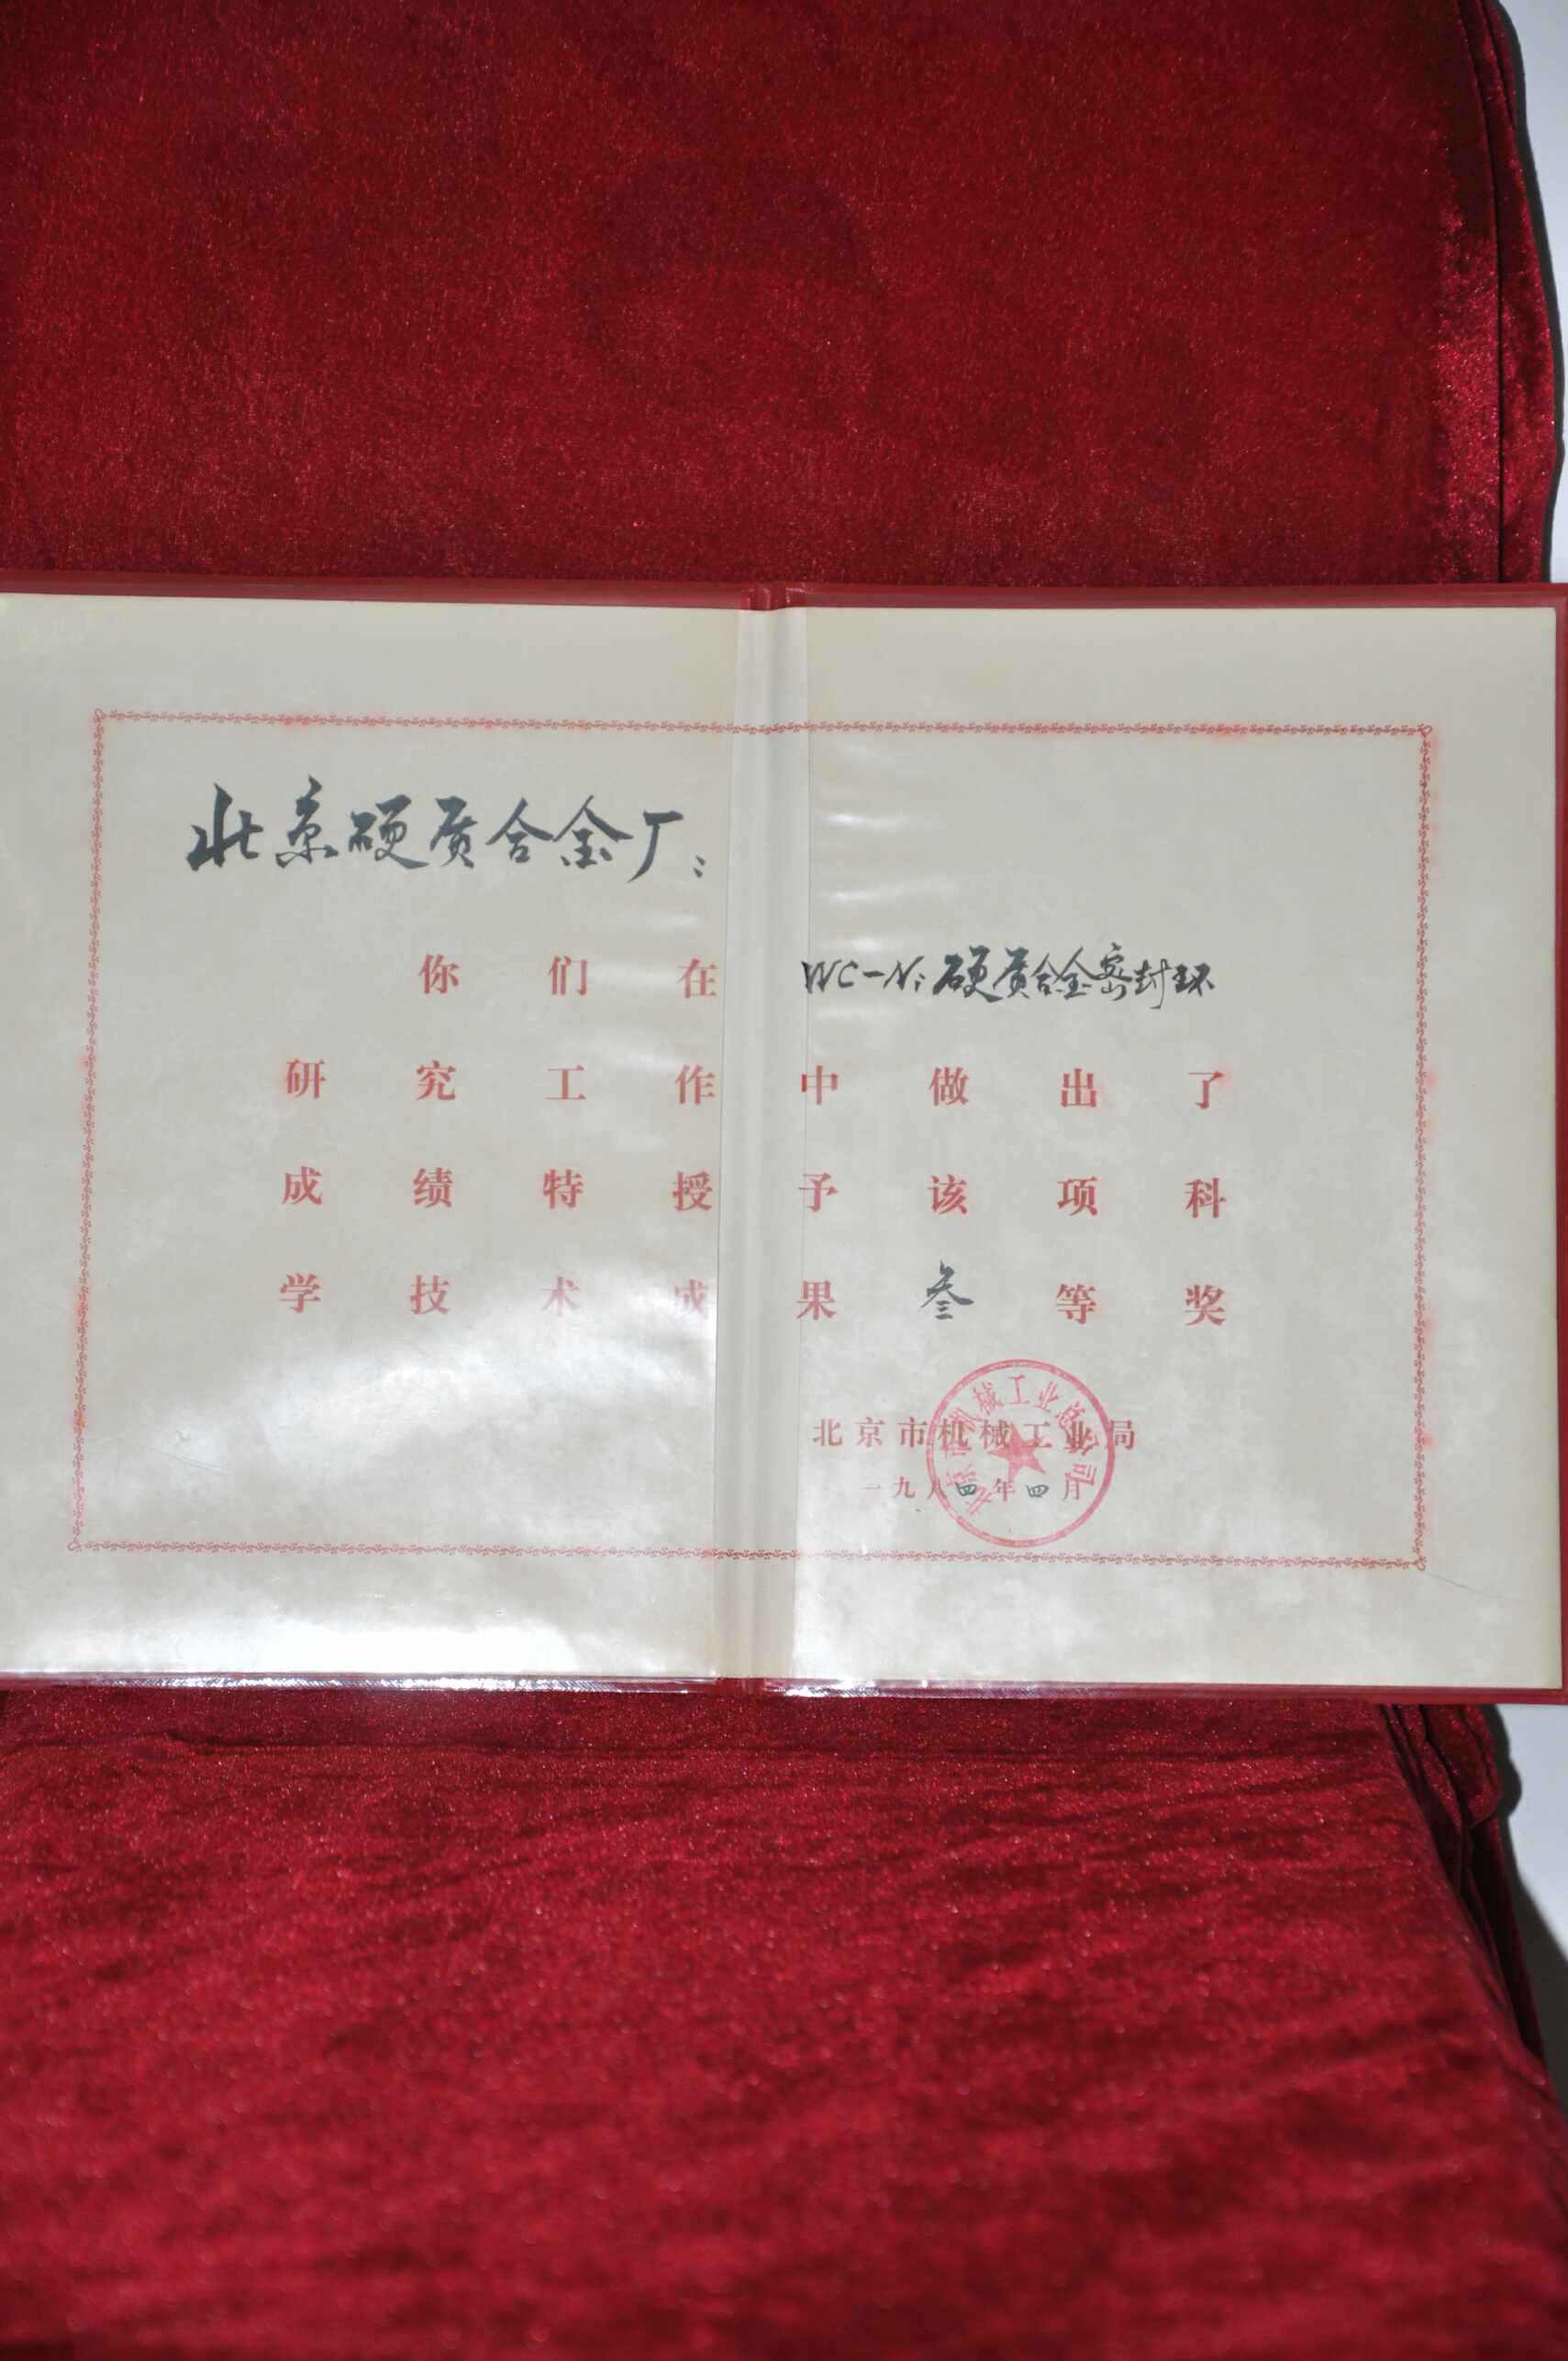 北京硬质合金厂:
你们在WC-Ni硬质合金密封环
研究工作中做出了
成绩特授予该项科
学技术成果叁等奖
北京市机械工业局
一九八四年四月
北京市机械工业总公司